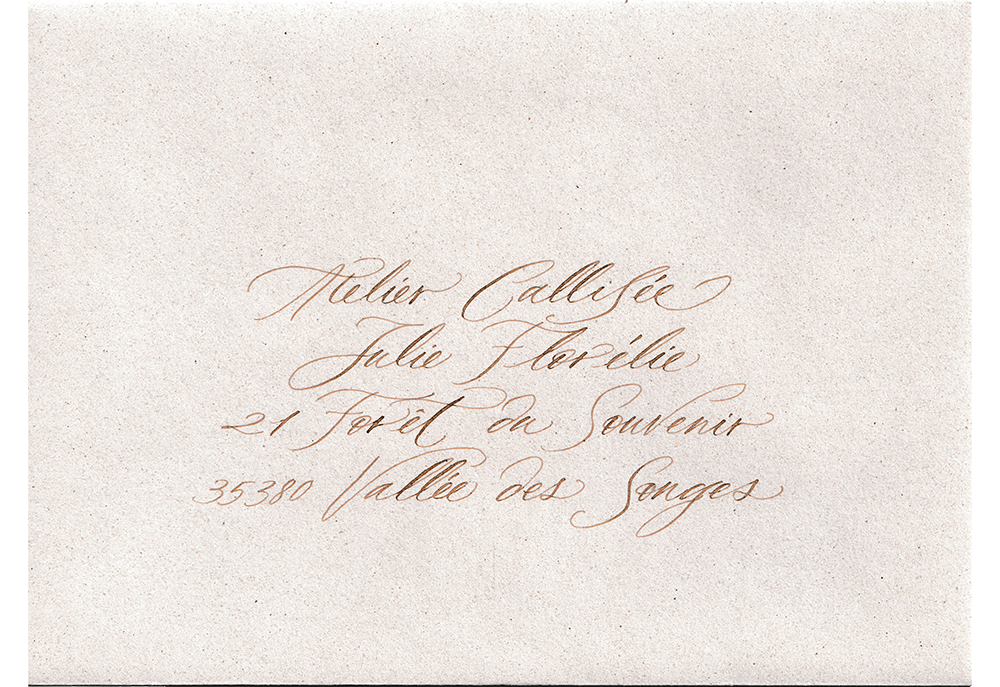 Atelier Callisée
Julie Florélie
21 Forêt du Souvenir
35380 Vallée des Songes